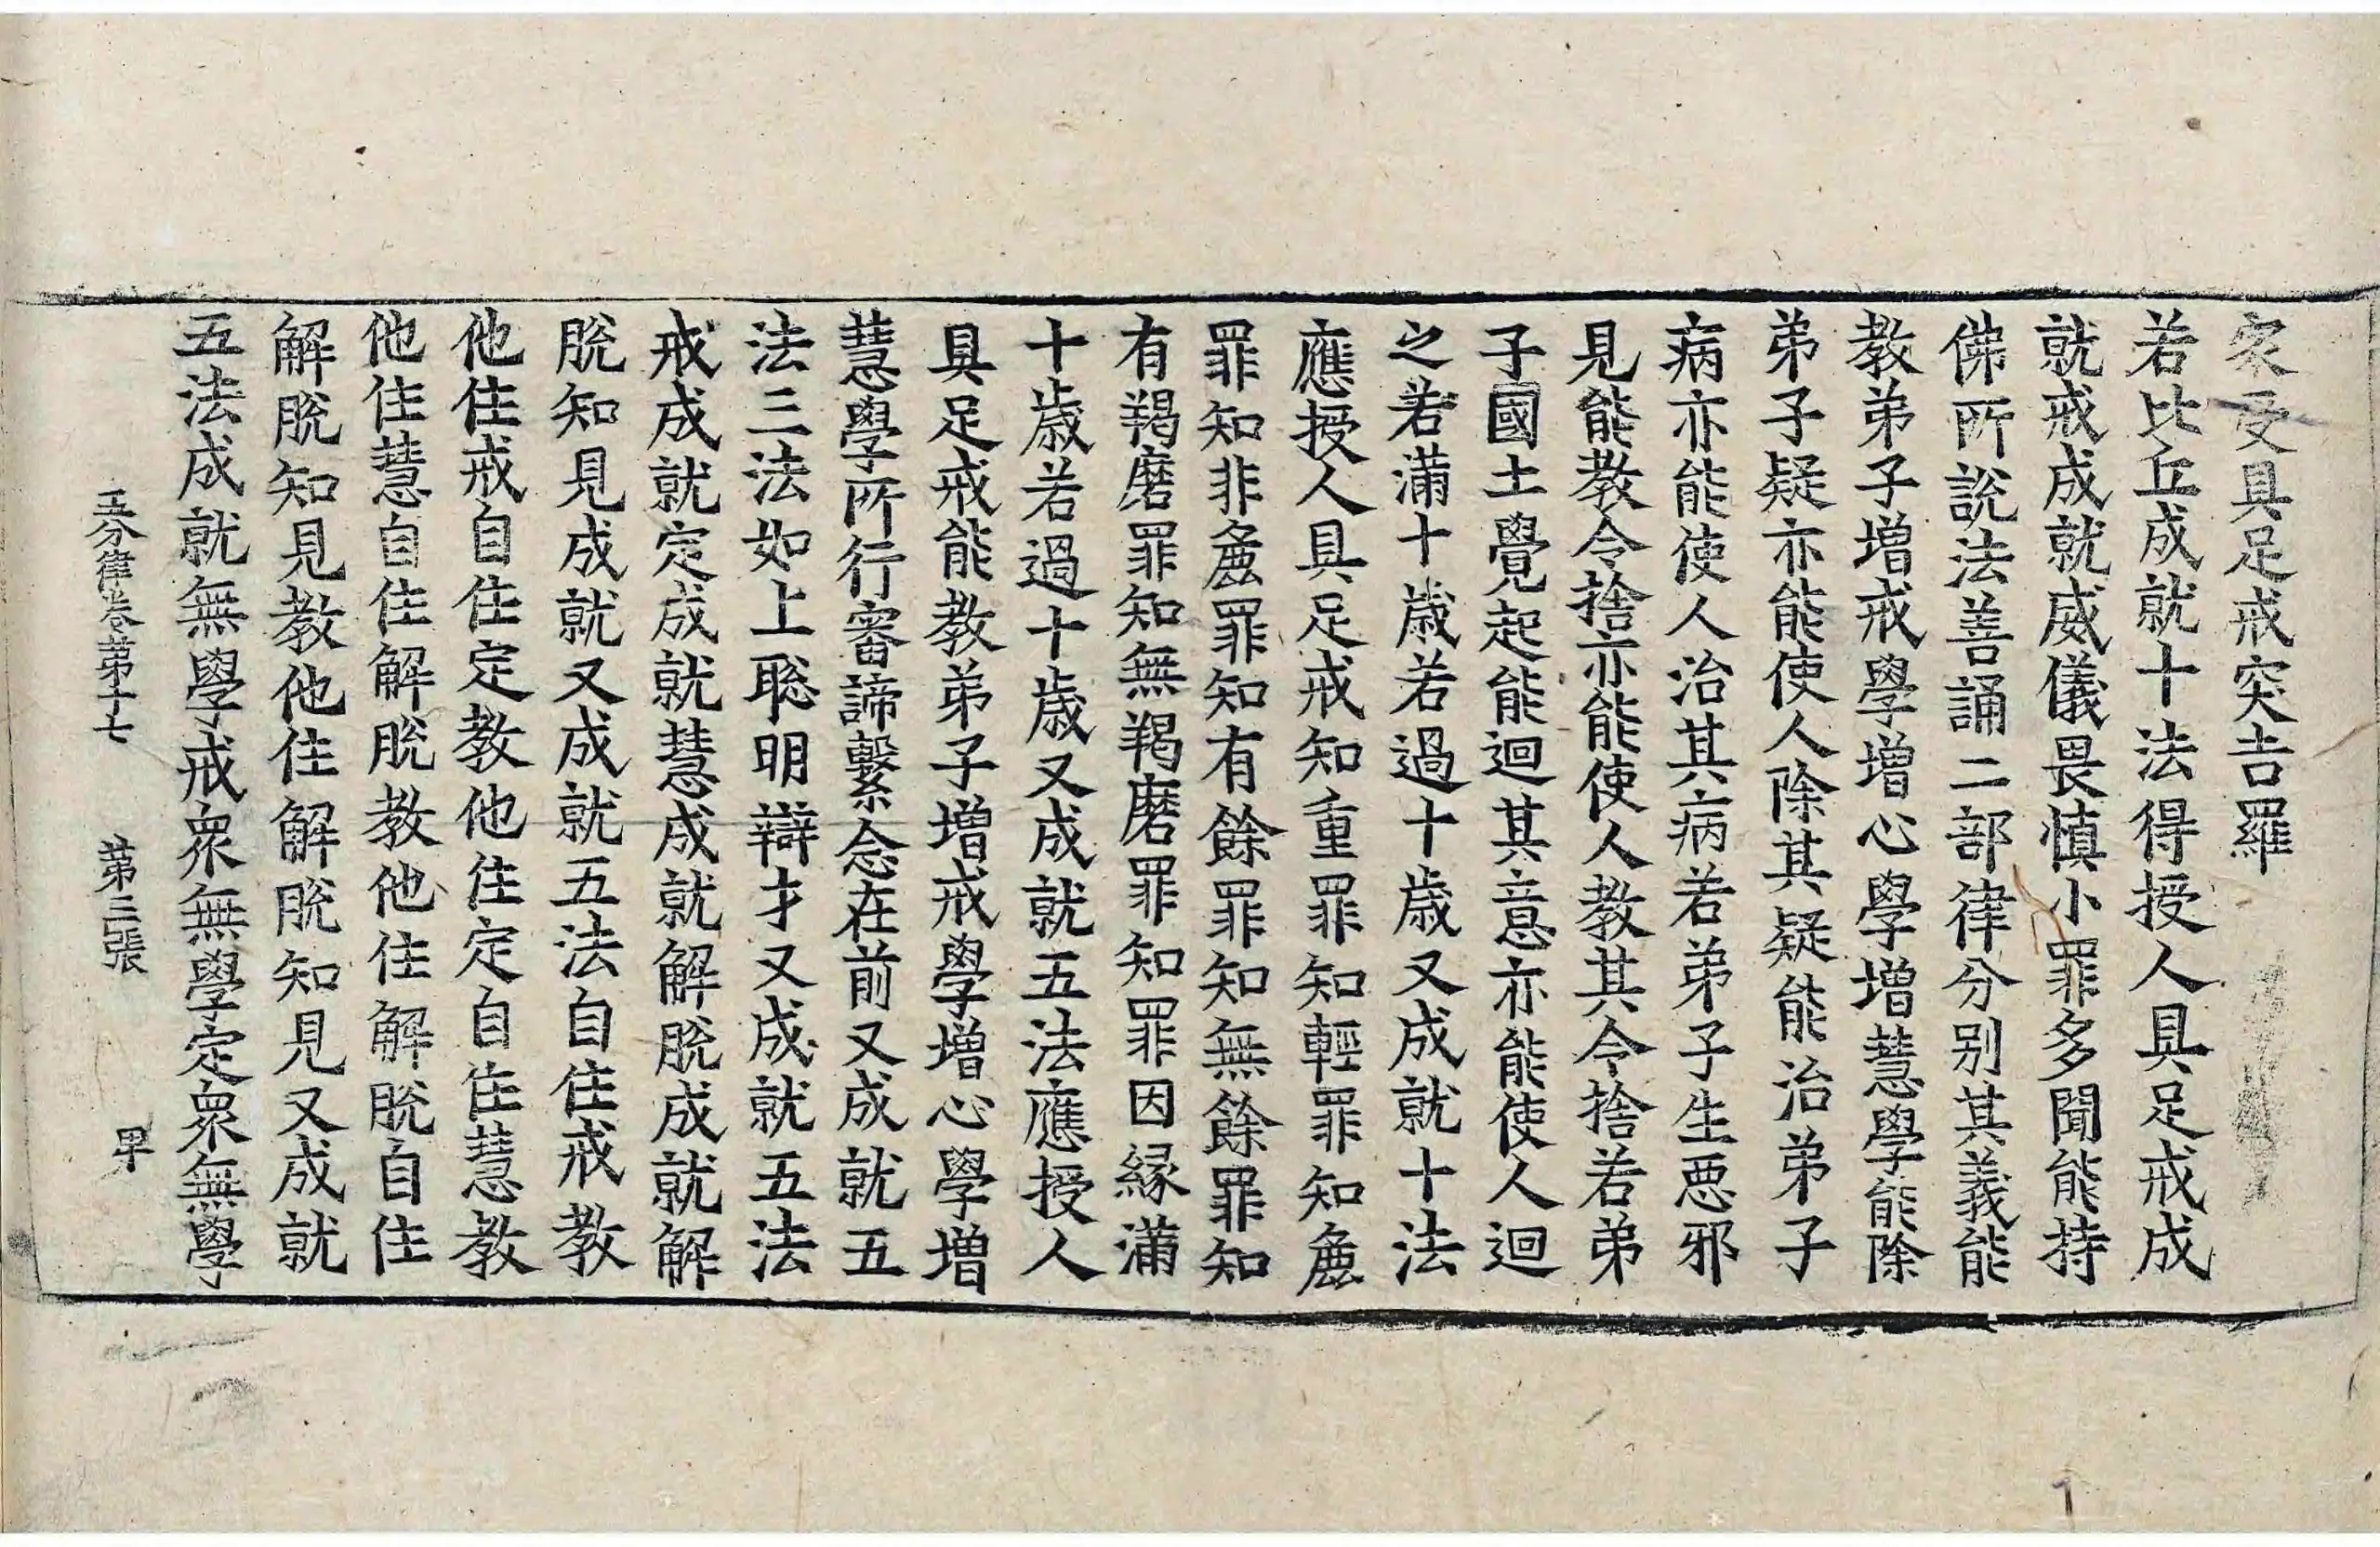 家受具足戒突吉羅
若比丘成就十法得授人具足戒成
就戒成就威儀畏慎小罪多聞能持
佛所說法善誦二部律分别其義能
教弟子增戒學增心學增慧學能除
弟子疑亦能使人除其疑能治弟子
病亦能使人治其病若弟子生惡邪
見能教令捨亦能使人教其令捨若弟
子國土覺起能迴其意亦能使人迴
之若滿十歲若過十歲又成就十法
應授人具足戒知重罪知輕罪知麁
罪知非麁罪知有餘罪知無餘罪知
有羯磨罪知無羯磨罪知罪因緣滿
十歲若過十歲又成就五法應授人
具足戒能教弟子增戒學增心學增
慧學所行審諦繫念在前又成就五
法三法如上聡明辯才又成就五法
戒成就定成就慧成就解脫成就解
脫知見成就又成就五法自住戒教
他住戒自住定教他住定自住慧教
他住慧自住解脫教他住解脫自住
解脫知見教他住解脫知見又成就
五法成就無學戒衆無學定衆無學
五分律卷第十七　第三張